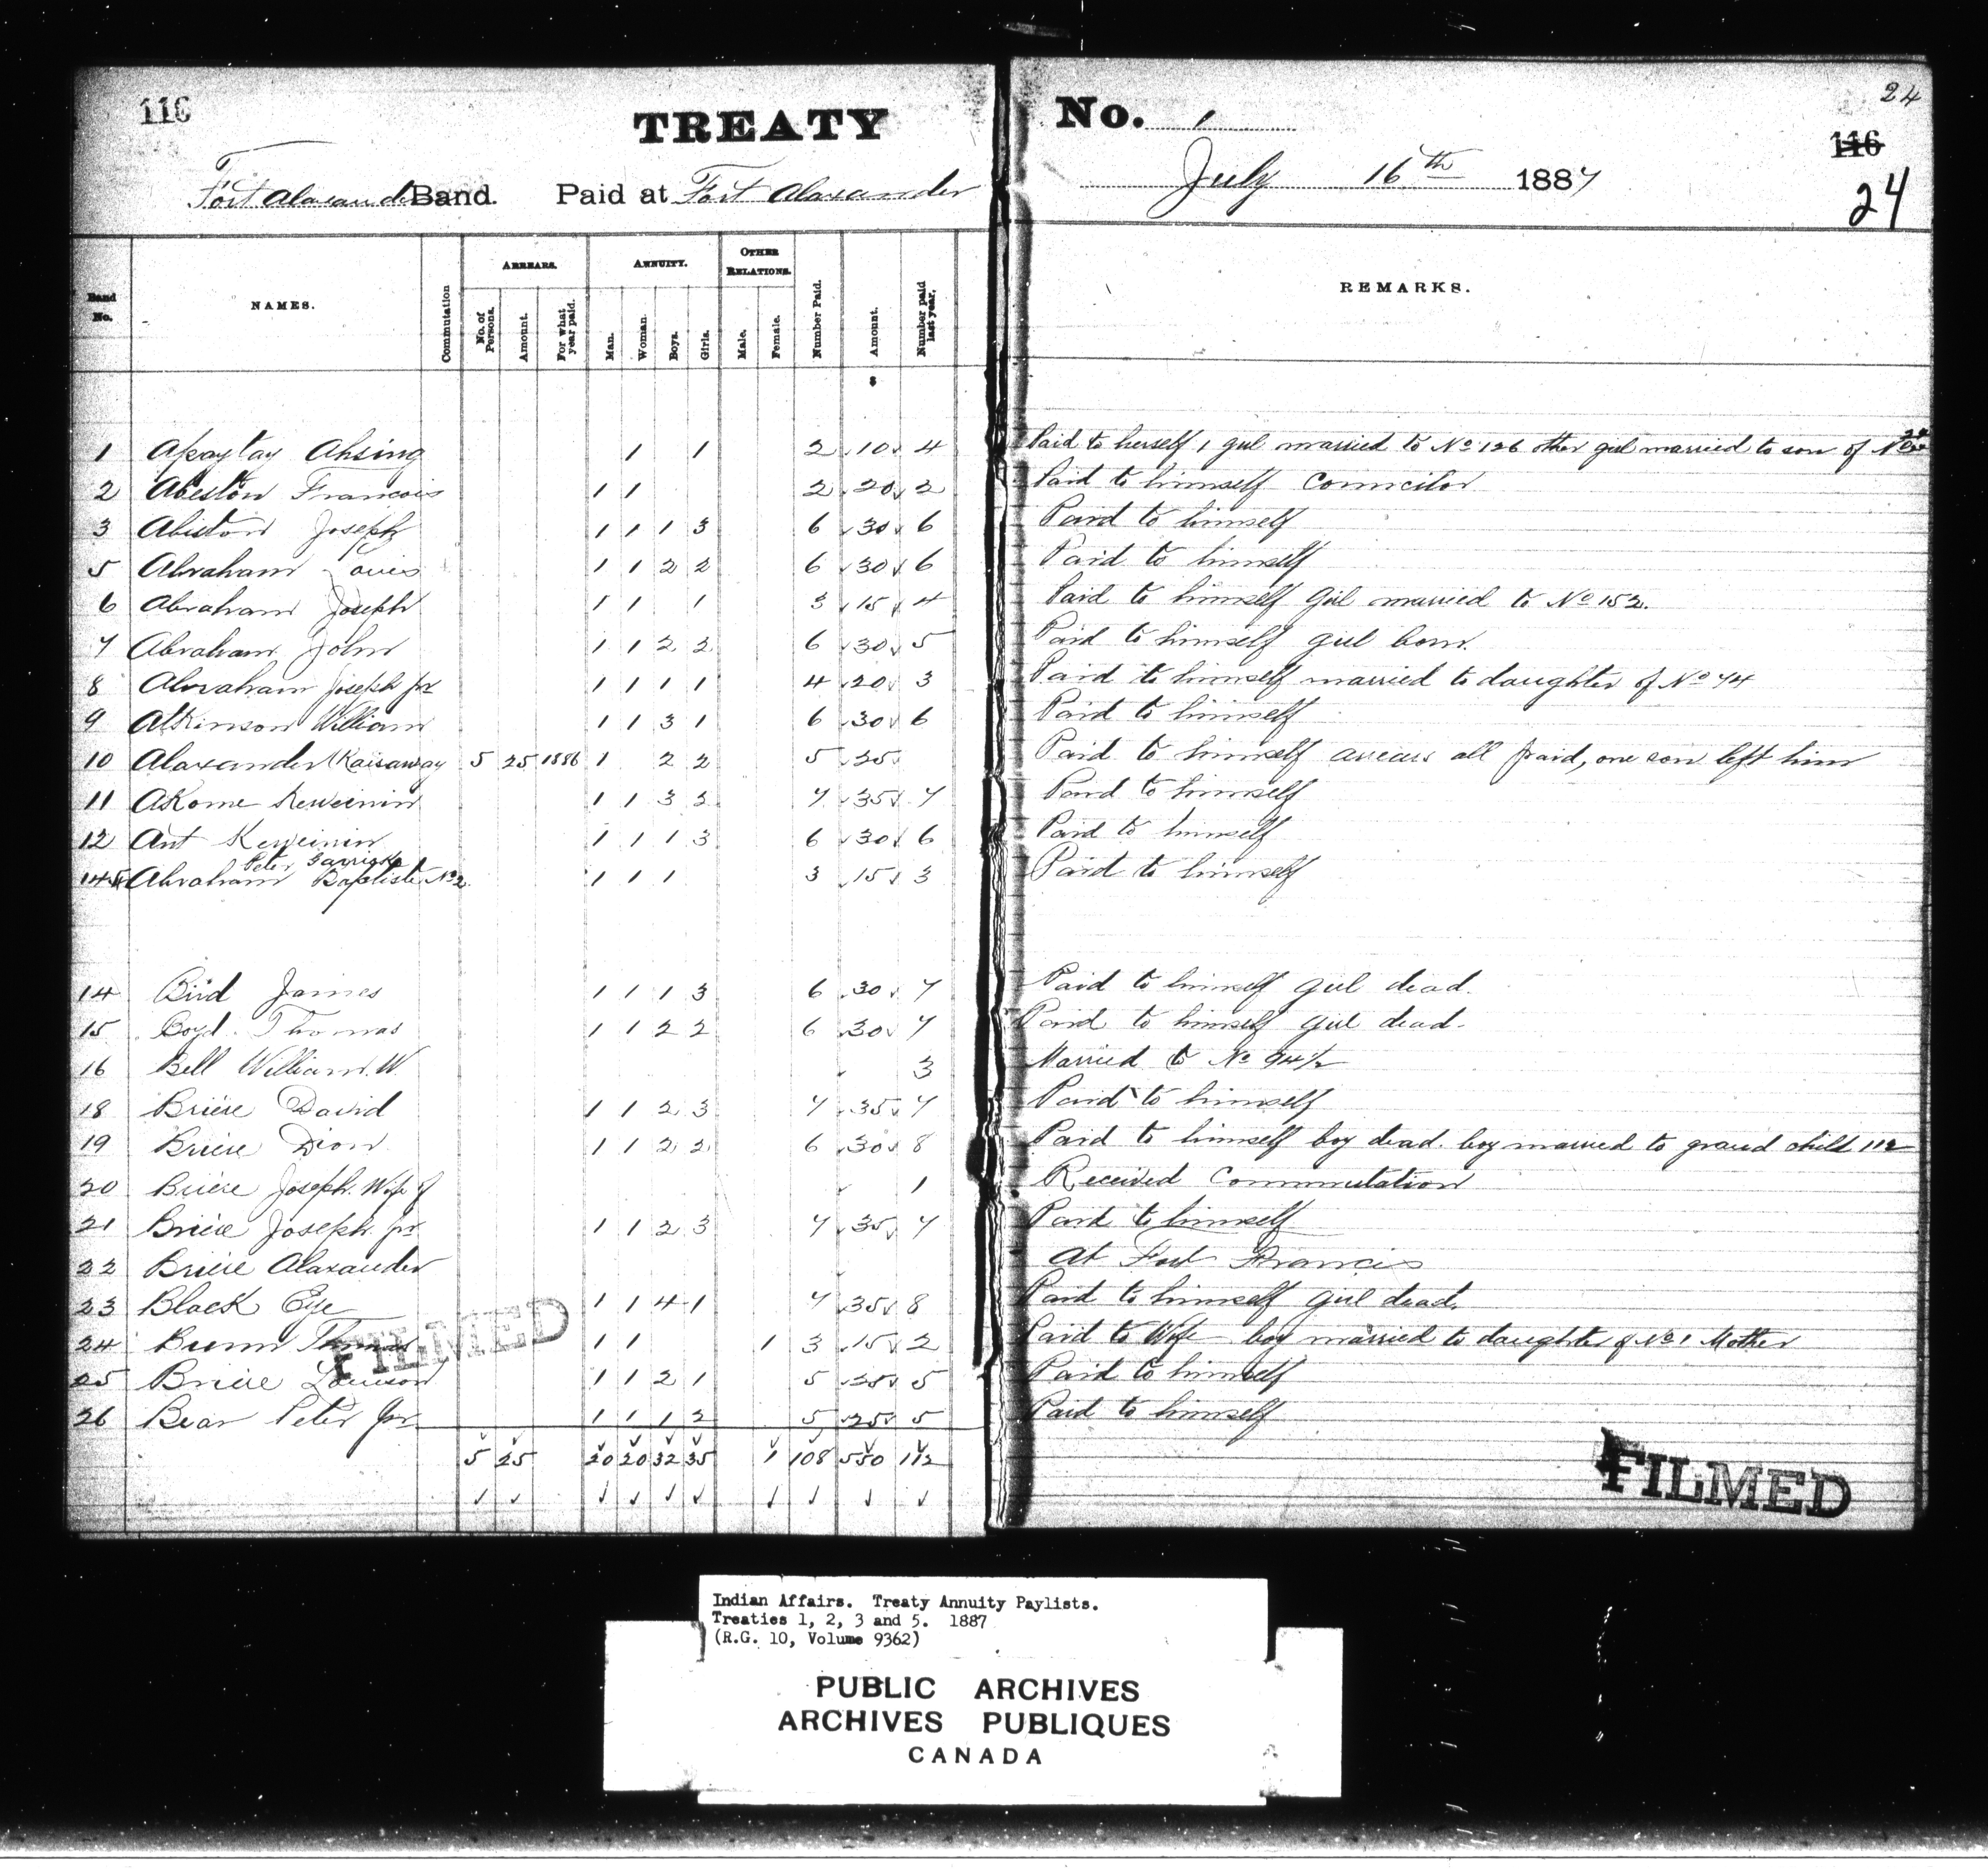 116
TREATY No. 1
24
116
24
Fort Alaxander Band. Paid at Fort Alaxander July 16th 1887
Band No. NAMES. Commutation ARREARS. No. of Persons. Amount. For what year paid. ANNUITY. Man. Woman. Boys. Girls. OTHER RELATIONS. Male. Female. Number Paid. Amount. Number paid last year. REMARKS.
$
1 Apaytay Ahsing 1 1 2 10 4 Paid to herself 1 girl married to No 126 other girl married to son of No 24
2 Abeston Francois 1 1 2 20 2 Paid to himself Councilor
3 Abiston Joseph 1 1 1 3 6 30 6 Paid to himself
5 Abraham Louis 1 1 2 2 6 30 6 Paid to himself
6 Abraham Joseph 1 1 1 3 15 4 Paid to himself Girl married to No 152.
7 Abraham John 1 1 2 2 6 30 5 Paid to himself girl born.
8 Abraham Joseph Jr 1 1 1 1 4 20 3 Paid to himself married to daughter of No 74
9 Atkinson William 1 1 3 1 6 30 6 Paid to himself
10 Alaxander Kaisaway 5 25 1886 1 2 2 5 25 Paid to himself arrears all paid, one son left him
11 Akome Keweinin 1 1 3 2 7 35 7 Paid to himself
12 Ant Keweinin 1 1 1 3 6 30 6 Paid to himself
Peter
145 Abraham Baptiste No 2 1 1 1 3 15 3 Paid to himself
14 Bird James 1 1 1 3 6 30 7 Paid to himself girl dead.
15 Boyd Thomas 1 1 2 2 6 30 7 Paid to himself girl dead.
16 Bell William W. 3 Married to No 94½
18 Briere David 1 1 2 3 7 35 7 Paid to himself
19 Briere Dion 1 1 2 2 6 30 8 Paid to himself boy dead. boy married to grand child 112
20 Briere Joseph Wife of 1 Received Commutation
21 Briere Joseph Jr 1 1 2 3 7 35 7 Paid to himself
22 Briere Alaxander At Fort Francis
23 Black Eye 1 1 4 1 7 35 8 Paid to himself girl dead.
24 Bunn Thomas 1 1 1 3 15 2 Paid to Wife boy married to daughter of No 1 Mother
25 Briere Louison 1 1 2 1 5 25 5 Paid to himself
26 Bear Peter Jr 1 1 1 2 5 25 5 Paid to himself
5 25 20 20 32 35 1 108 550 112
FILMED
FILMED
Indian Affairs. Treaty Annuity Paylists.
Treaties 1, 2, 3 and 5. 1887
(R.G. 10, Volume 9362)
PUBLIC ARCHIVES
ARCHIVES PUBLIQUES
CANADA